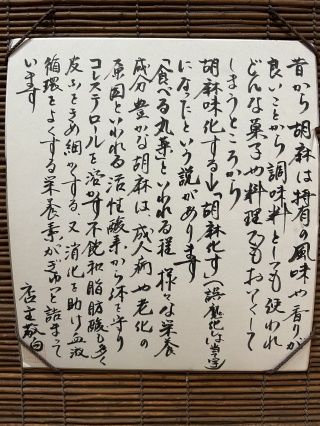 昔から 胡麻は特有の風味や香りが
良いことから調味料としても使われ
どんな菓子や料理でもおいしくして
しまうところから
胡麻味化する→胡麻化す(誤魔化しは当て字)
になったという説があります
「食べる丸薬」といわれる程 様々な栄養
成分豊かな胡麻は、成人病や老化の
原因といわれる活性酸素から体を守り
コレステロールを溶かす不飽和脂肪酸も多く
皮ふをきめ細かくする、又消化を助け血液
循環をよくする栄養素がぎゅっと詰まって
います
店主敬白